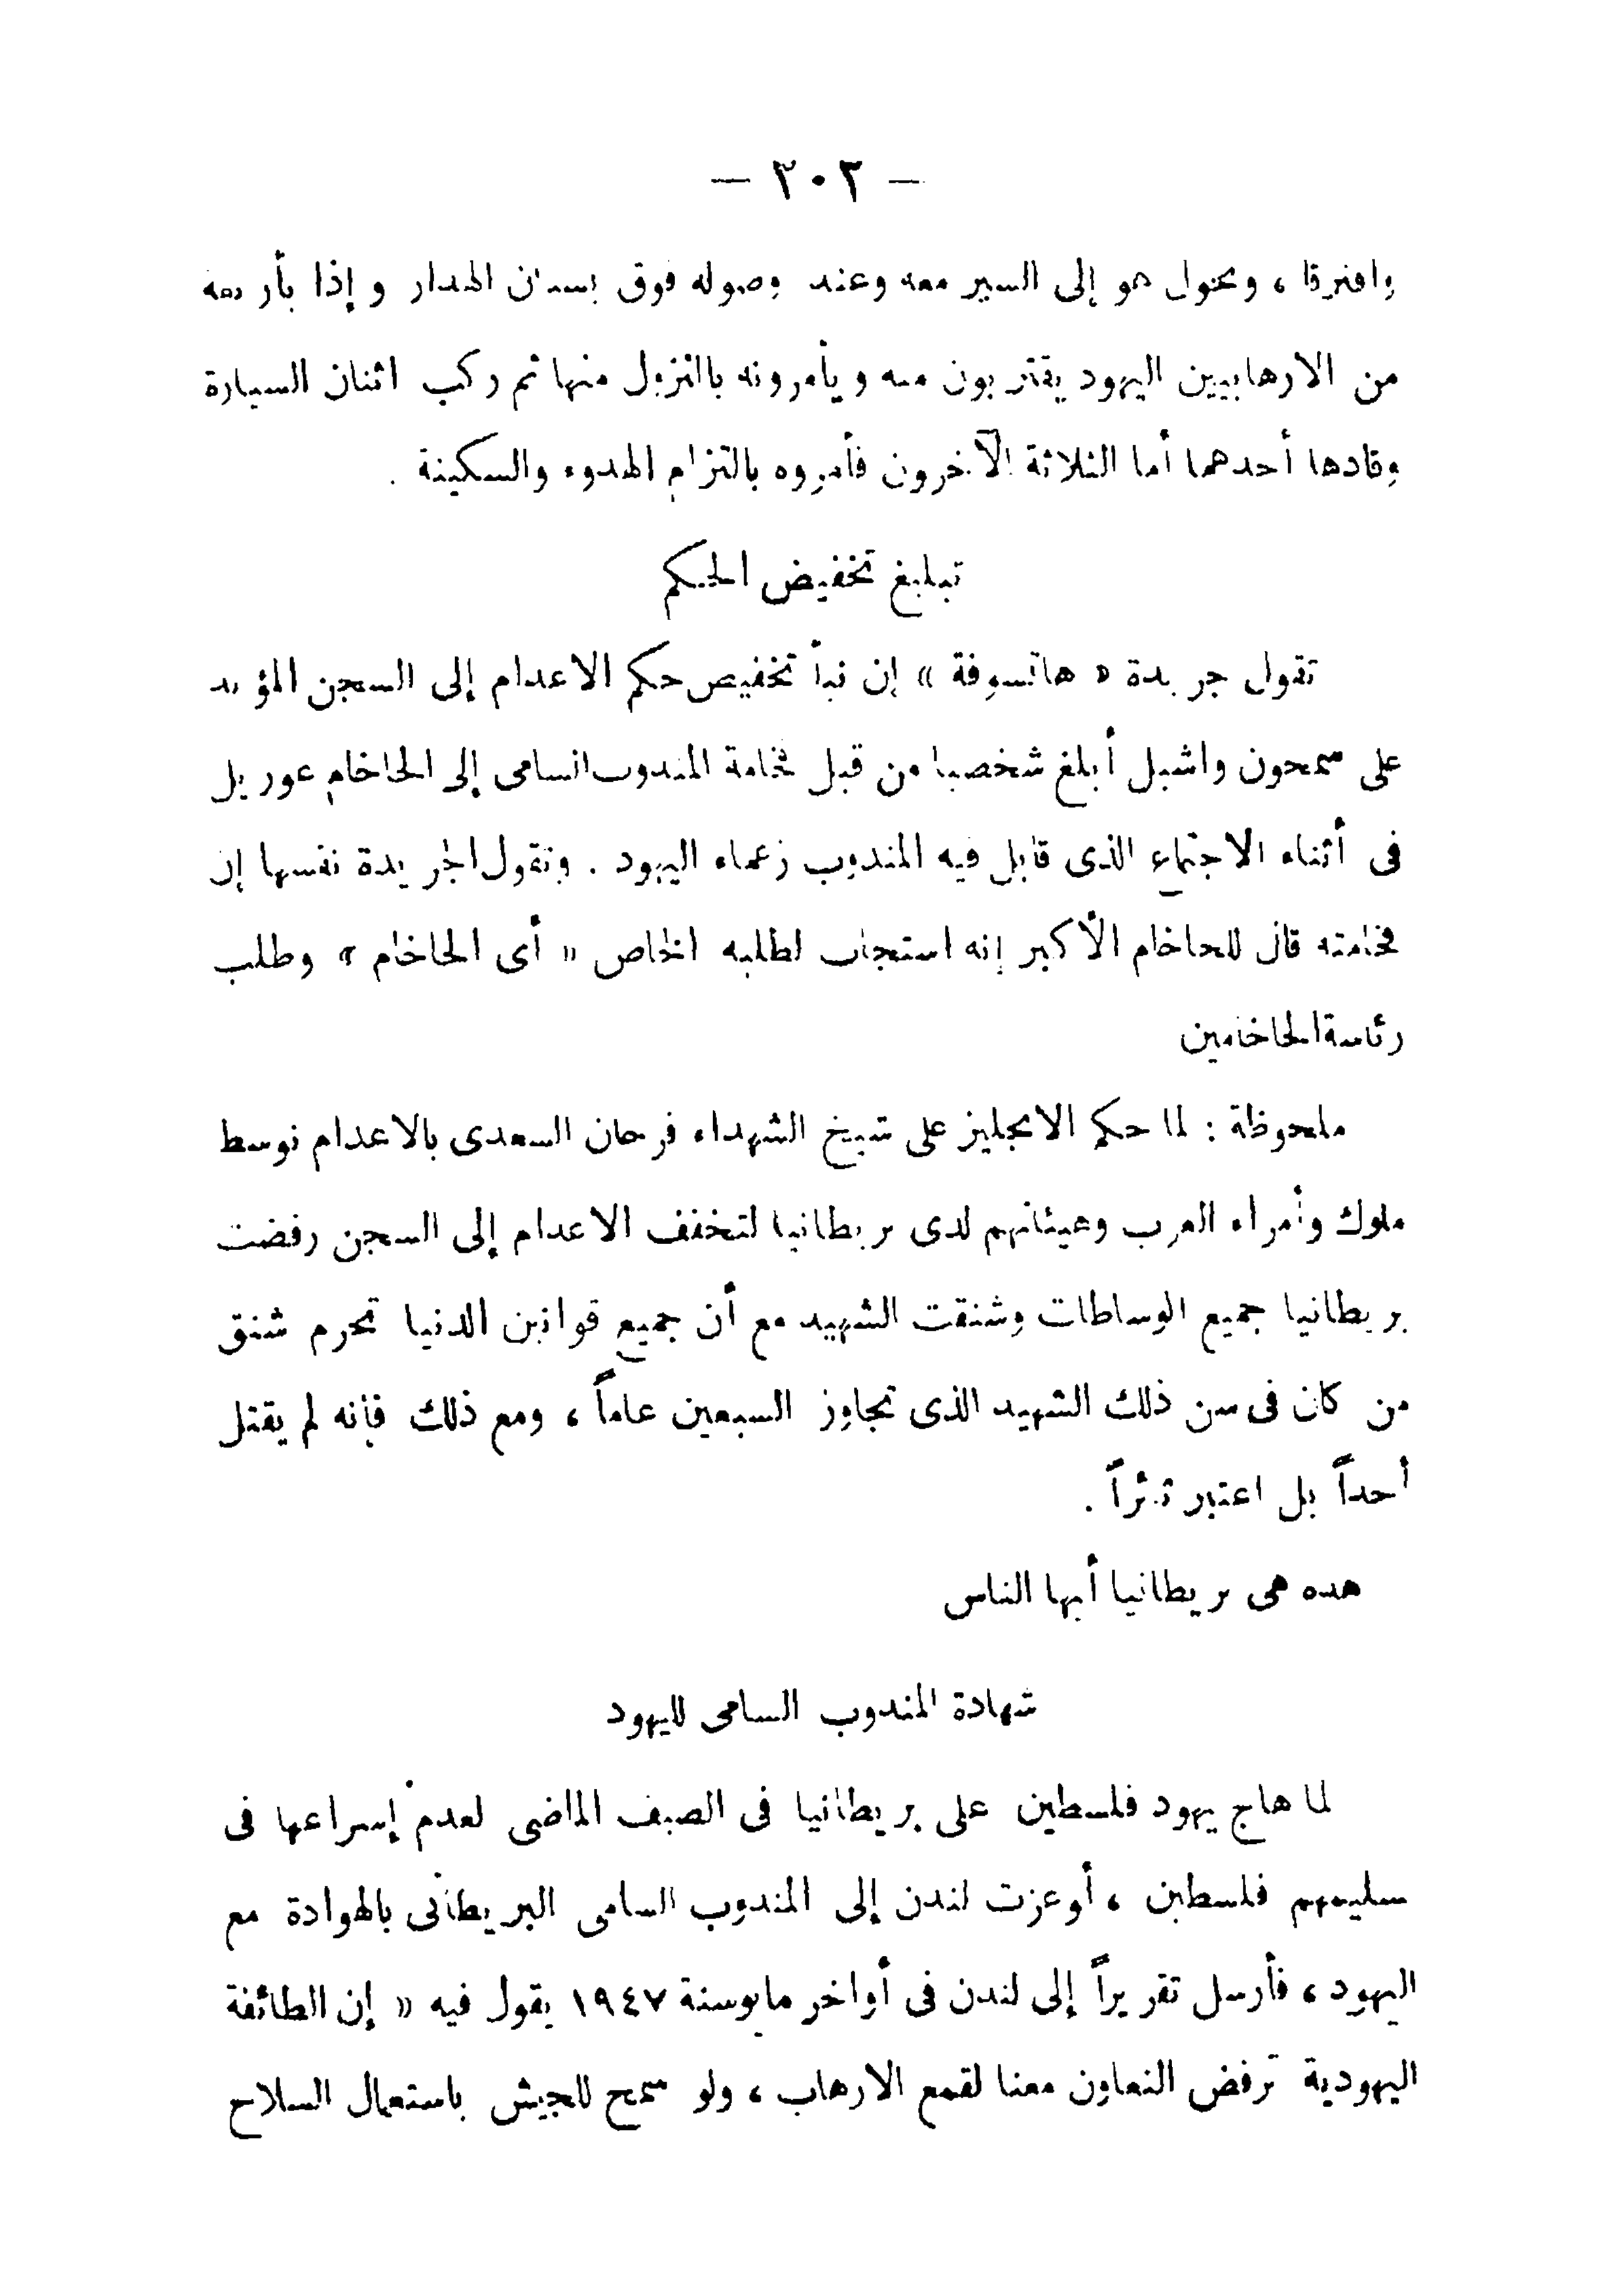 — ٣٠٢ —
وافترقا ، وتحول هو إلى السير معه وعند وصوله فوق بستان الهدار وإذا بأربعة
من الارهابيين اليهود يقتربون منه ويأمرونه بالنزول منها ثم ركب اثنان السيارة
وقادها أحدهما أما الثلاثة الآخرون فأمروه بالتزام الهدوء والسكينة .
تبليغ تخفيض الحكم
تقول جريدة « هاتسوفة » إن نبأ تخفيض حكم الاعدام إلى السجن المؤبد
على سمحون واشبل أبلغ شخصيا من قبل فخامة المندوب السامى إلى الحاخام عوريل
فى أثناء الاجتماع الذى قابل فيه المندوب زعماء اليهود . وتقول الجريدة نفسها إن
فخامته قال للحاخام الأكبر إنه استجاب لطلبه الخاص « أى الحاخام » وطلب
رئاسة الحاخامين
ملحوظة : لما حكم الانجليز على شيخ الشهداء فرحان السعدى بالاعدام توسط
ملوك وأمراء العرب وهيئاتهم لدى بريطانيا لتخفف الاعدام إلى السجن رفضت
بريطانيا جميع الوساطات وشنقت الشهيد مع أن جميع قوانين الدنيا تحرم شنق
من كان فى سن ذلك الشهيد الذى تجاوز السبعين عاماً ، ومع ذلك فإنه لم يقتل
أحداً بل اعتبر ثائراً .
هذه هى بريطانيا أيها الناس
شهادة المندوب السامى لليهود
لما هاج يهود فلسطين على بريطانيا فى الصيف الماضى لعدم إسراعها فى
تسليمهم فلسطين ، أوعزت لندن إلى المندوب السامى البريطانى بالهوادة مع
اليهود ، فأرسل تقريراً إلى لندن فى أواخر مايوسنة ١٩٤٧ يقول فيه « إن الطائفة
اليهودية ترفض التعاون معنا لقمع الارهاب ، ولو سمح للجيش باستعمال السلاح